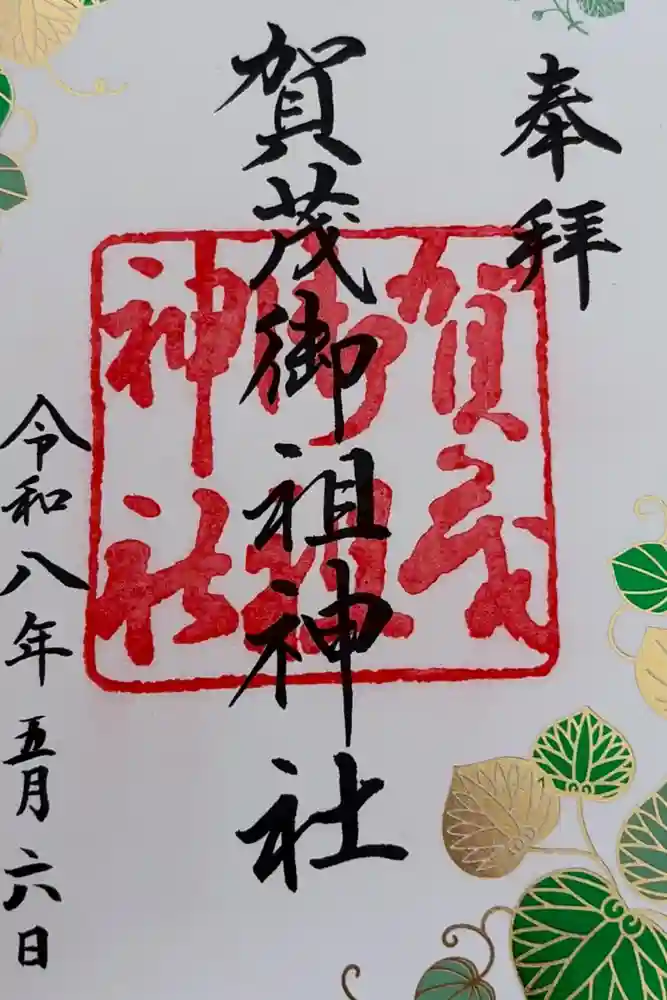 奉拝
賀茂御祖神社
賀茂
御祖
神社
令和八年五月六日